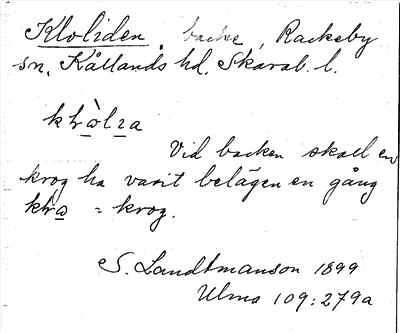 Kloliden, backe, Rackeby
sn, Kållands hd, Skarab. l.
Vid backen skall en
krog ha varit belägen en gång
= krog.
S. Landtmanson 1899
Ulma 109:279a